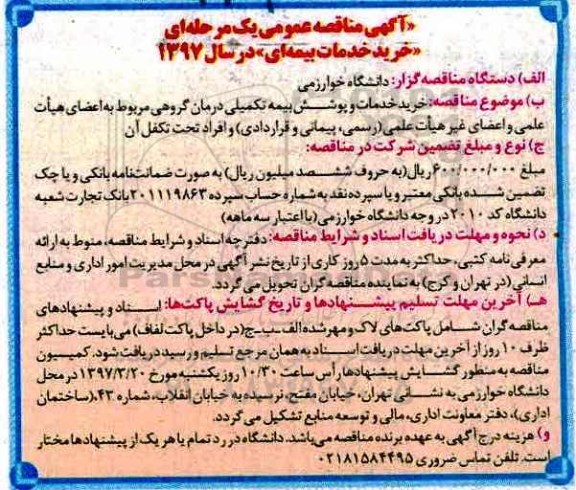 «آگهی مناقصه عمومی یک مرحله‌ای
«خرید خدمات بیمه‌ای» در سال ۱۳۹۷
الف) دستگاه مناقصه گزار: دانشگاه خوارزمی
ب) موضوع مناقصه: خرید خدمات و پوشش بیمه تکمیلی درمان گروهی مربوط به اعضای هیأت
علمی و اعضای غیر هیأت علمی (رسمی، پیمانی و قراردادی) و افراد تحت تکفل آن
ج) نوع و مبلغ تضمین شرکت در مناقصه:
مبلغ ۶۰۰/۰۰۰/۰۰۰ ریال (به حروف ششصد میلیون ریال) به صورت ضمانت‌نامه بانکی و یا چک
تضمین شده بانکی معتبر و یا سپرده نقد به شماره حساب سپرده ۲۰۱۱۱۹۸۶۳ بانک تجارت شعبه
دانشگاه کد ۲۰۱۰ در وجه دانشگاه خوارزمی (با اعتبار سه ماهه)
د) نحوه و مهلت دریافت اسناد و شرایط مناقصه: دفترچه اسناد و شرایط مناقصه، منوط به ارائه
معرفی نامه کتبی، حداکثر به مدت ۵ روز کاری از تاریخ نشر آگهی در محل مدیریت امور اداری و منابع
انسانی (در تهران و کرج) به نماینده مناقصه گران تحویل می گردد.
هـ) آخرین مهلت تسلیم پیشنهادها و تاریخ گشایش پاکت‌ها: اسناد و پیشنهادهای
مناقصه گران شامل پاکت‌های لاک و مهر شده الف-ب-ج (در داخل پاکت لفاف) می‌بایست حداکثر
ظرف ۱۰ روز از آخرین مهلت دریافت اسناد به همان مرجع تسلیم و رسید دریافت شود. کمیسیون
مناقصه به منظور گشایش پیشنهادها رأس ساعت ۱۰/۳۰ روز یکشنبه مورخ ۱۳۹۷/۳/۲۰ در محل
دانشگاه خوارزمی به نشانی تهران، خیابان مفتح، نرسیده به خیابان انقلاب، شماره ۴۳، (ساختمان
اداری)، دفتر معاونت اداری، مالی و توسعه منابع تشکیل می گردد.
و) هزینه درج آگهی به عهده برنده مناقصه می‌باشد. دانشگاه در رد تمام یا هر یک از پیشنهادها مختار
است. تلفن تماس ضروری ۰۲۱۸۱۵۸۴۴۹۵